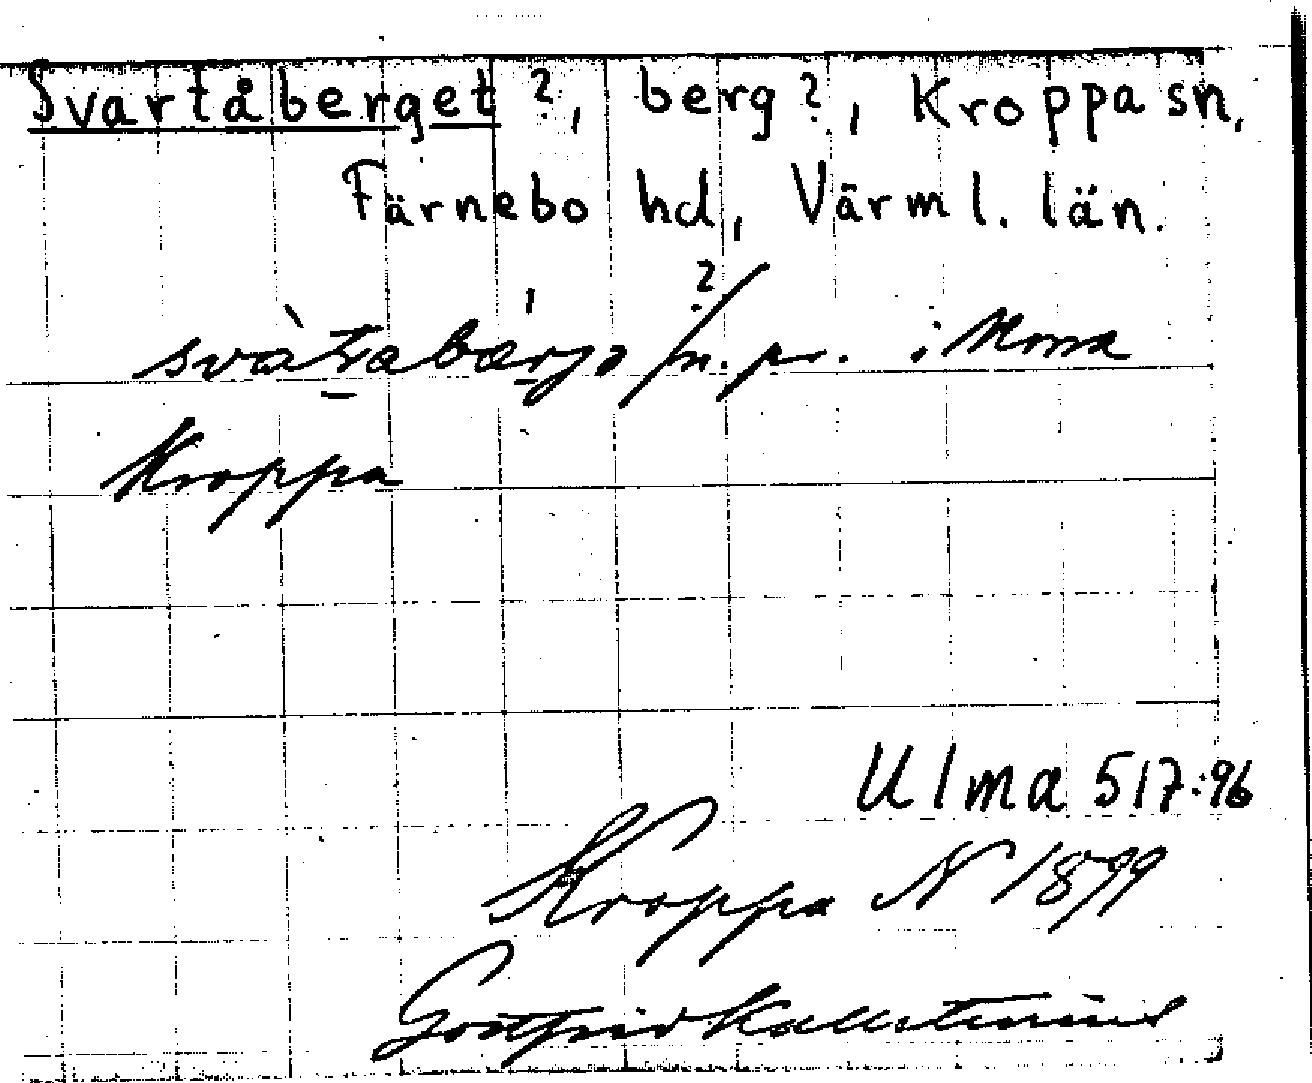 Svartåberget ?, berg ?, Kroppa sn,
Färnebo hd, Värml. län.
?
n. pr. i
Kroppa
Ulma 517:96
Kroppa N 1899
Gottfrid Kallstenius